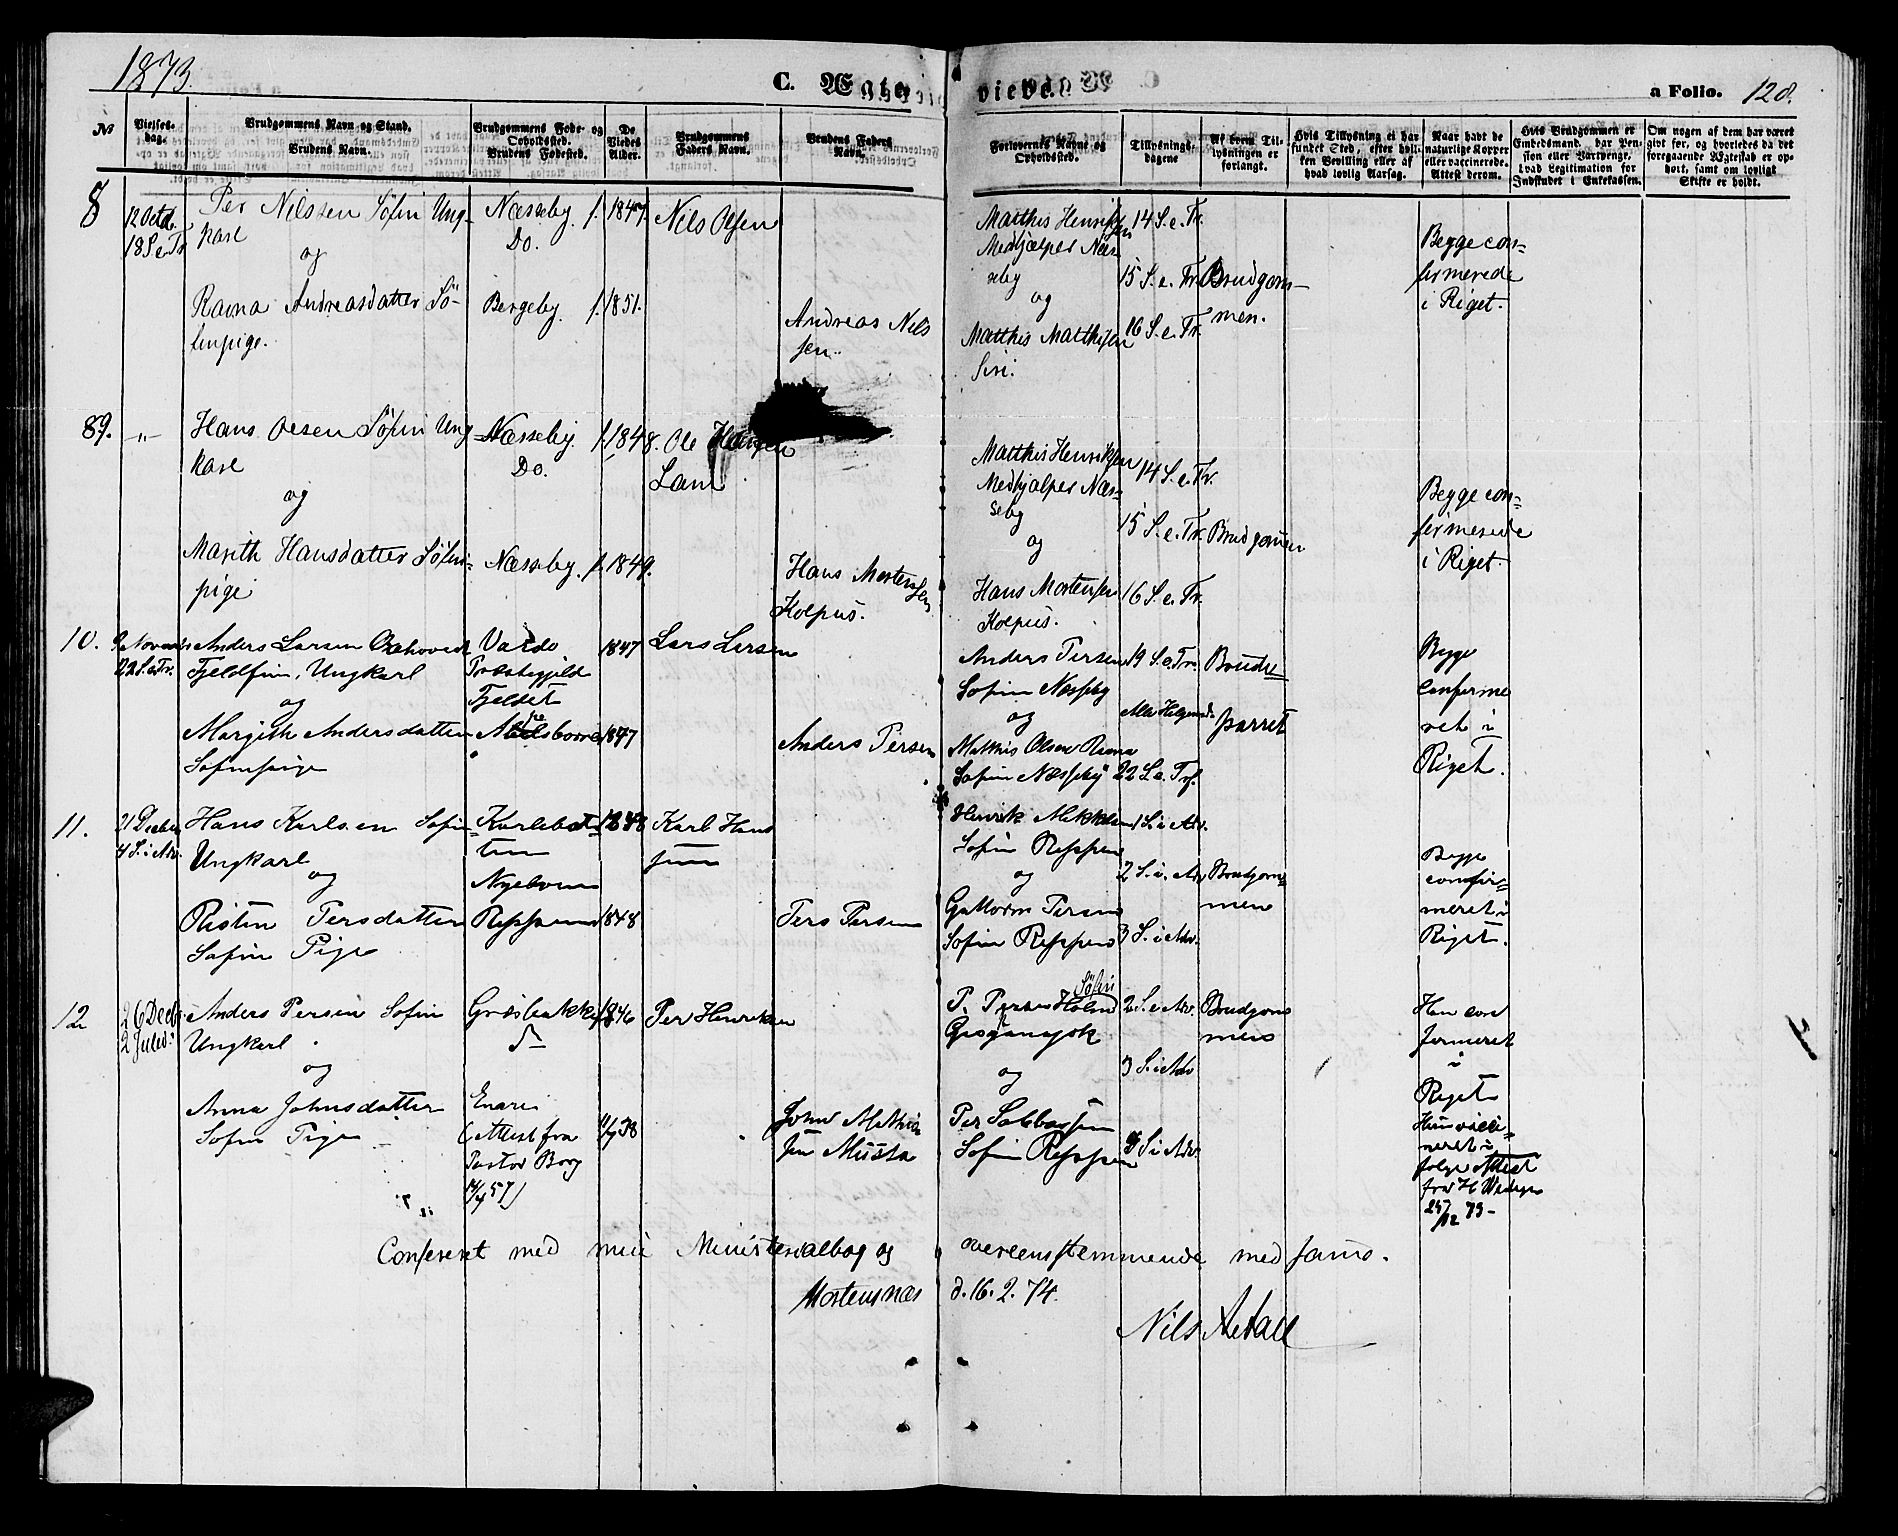 1873.
C. Ægte
viede.
a Folio. 128.
No
Vielses-
dag.
Brudgommens Navn og Stand.
Brudens Navn.
Brudgommens Føde- og
Opholdssted.
Brudens Fødested.
De
Viedes
Alder.
Brudgommens
Faders Navn.
Brudens Faders
Navn.
Forlovernes Navne og
Opholdssted.
Tillysnings-
dagene
Af hvem Til-
lysningen er
forlangt.
Hvis Tillysning ei har
fundet Sted, efter hvil-
ken Bevilling eller af
hvad lovlig Aarsag.
Naar havt de
naturlige Kopper
eller vaccinerede.
Attest derom.
Hvis Brudgommen er
Embedsmand, har Pen-
sion eller Vartpenge,
hvad Legitimation for
Indskudet i Enkekassen.
Om nogen af dem har været
givt før, og hvorledes da det
foregaaende Ægteskab er op-
hørt, samt om lovligt
Skifte er holdt.
8
12 Octb.
18 S. e. Tr.
Per Nilssen Søfin Ung-
karl
og
Ravna Andreasdatter Sö-
finpige.
Næsseby
Do.
Bergeby
f. 1847.
f. 1851.
Nils Olsen
Andreas Nils
sen.
Matthis Henriksen
Medhjælper Næs-
seby
og
Matthis Matthisen
Siri.
14 S. e. Tr.
15 S. e. Tr.
16 S. e. Tr.
Brudgom-
men.
Begge con-
firmerede
i Riget.
89.
-"-
Hans Olsen Söfin Ung
karl
og
Marith Hansdatter Söfin-
pige
Næsseby
Do.
Næsseby.
f. 1848.
f. 1849.
Ole Hansen
Hans Mortensen
Kolpus.
Matthis Henriksen
Medhjælper Næs-
seby
og
Hans Mortensen
Kolpus.
14 S. e. Tr.
15 S. e. Tr.
16 S. e. Tr.
Brudgommen
Begge con-
firmerede
i Riget.
10.
9 Novemb
22 S. e. Tr.
Anders Larsen
Fjeldfin, Ungkarl
og
Margith Andersdatter
Sofinpige
Vardo
Præstegjeld
Fjeldet
1847
1847
Lars Larsen
Anders Persen
Anders Persen
Sofin Næsseby
og
Mathis Olsen
Sofin Næsseby
19 S. e. Tr.
Alle Helgensd.
22 S. e. Tr.
Brude
parret
Begge
confirme
ret i
Riget.
11.
21 Decbr
4 S. i Adv.
Hans Karlsen Sofin
Ungkarl
og
Ristin Persdatter
Sofin Pige
Karlebot-
ten
Nyeborn
Reppen
1848
1848
Karl Hans
sen
Pers Persen
Henrik Mikkelsen
Sofin Reppen
og
Guttorm Persen
Sofin Reppen
1 S. i Adv.
2 S. i. Adv
3 S. i Adv.
Brudgom-
men
Begge
confir-
meret i
Riget.
12
26 Decb.
2 Juled.
Anders Persen Sofin
Ungkarl
og
Anna Johnsdatter
Sofin Pige
Græsbakken
Enare
(Attest fra
Pastor Borg
1846
Per Henriksen
John Mathis
sen Musta
Söfin
P. Persen Holm
og
Per Sabbassen
Sofin Reppen
2 S. i Adv.
3 S. i Adv
4 S. i Adv.
Brudgom
men
Han con
firmeret
i
Riget
Hun vacci-
neret i
følge Attest
Confereret med min Ministerialbog og overensstemmende med samme.
Mortensnæs d. 16. 2. 74.